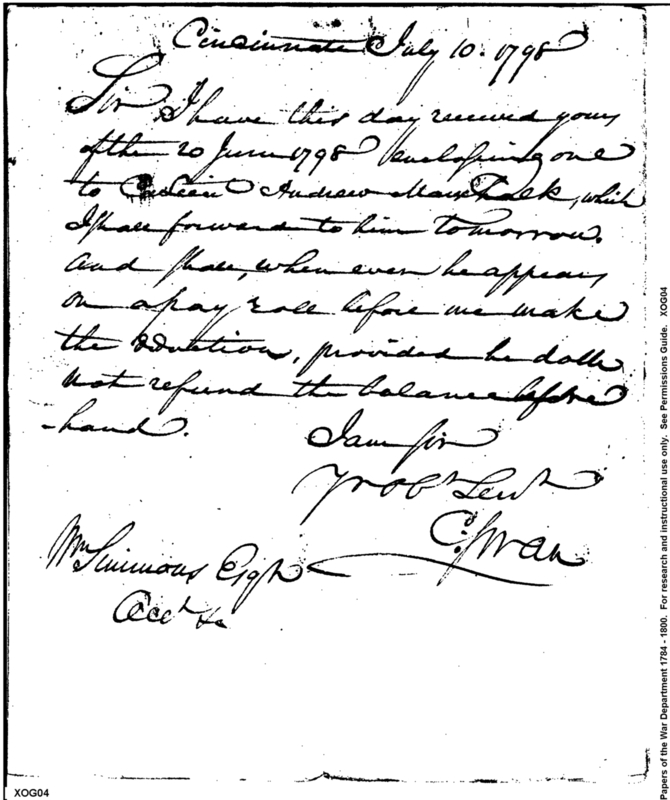 Cincinnati July 10. 1798
Sir, I have this day received yours
of the 20 June 1798 enclosing one
to Andrew Marschalk, which
I shall forward to him tomorrow.
and shall, when ever he appears
on a pay roll before me make
the deduction, provided he doth
not refund the balance before
-hand.
I am Sir
Yr Obt Servt
C. Swan
Wm Simmons Esqr
Acct &c
XOG04
Papers of the War Department 1784 - 1800. For research and instructional use only. See Permissions Guide. XOG04